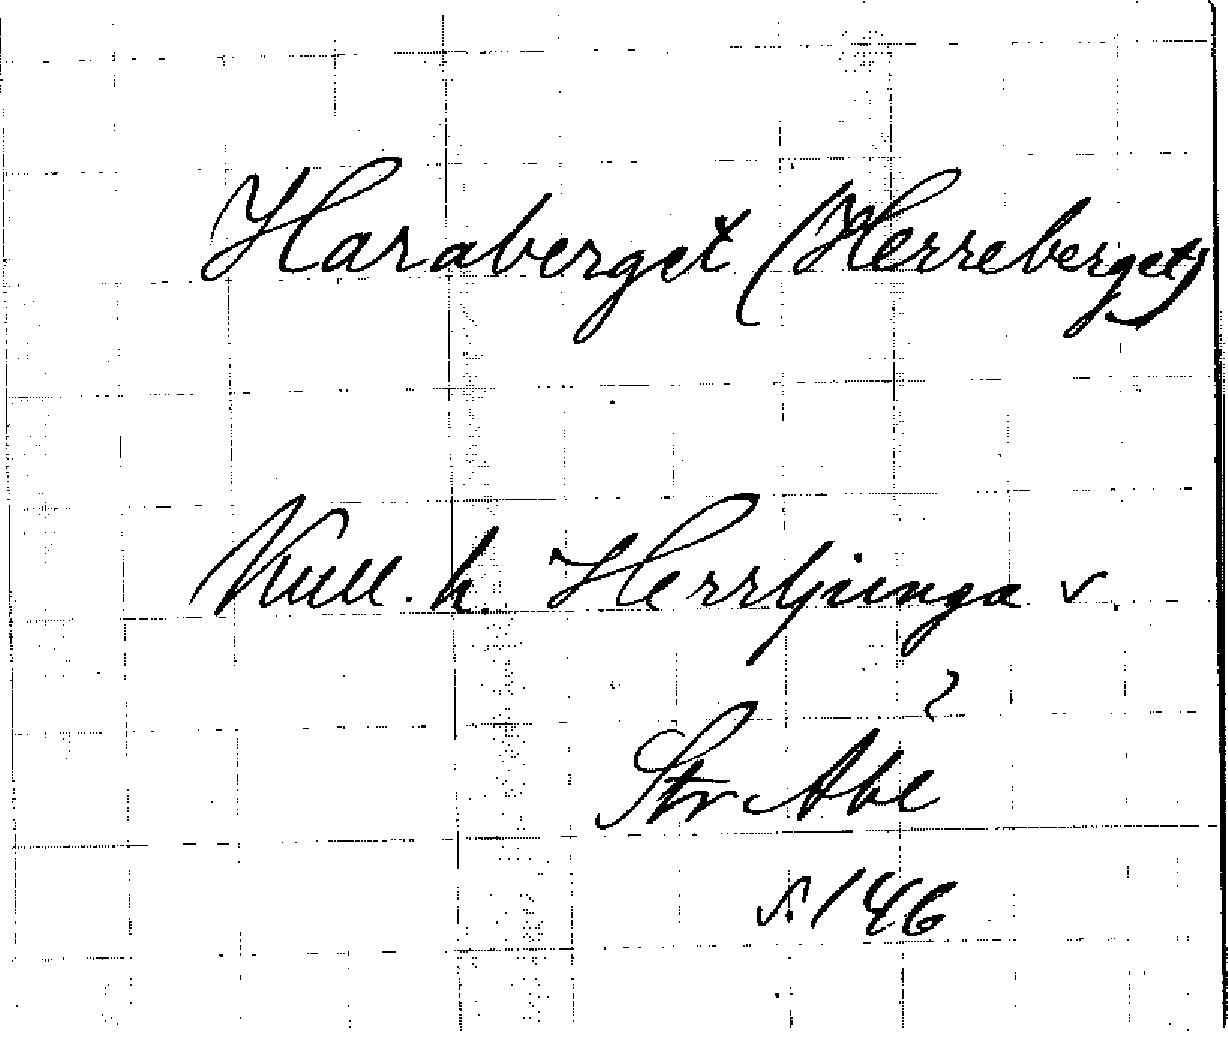 Haraberget (Herreberget)
Kull. h. Herrljunga v.
?
Str Abe
s. 146